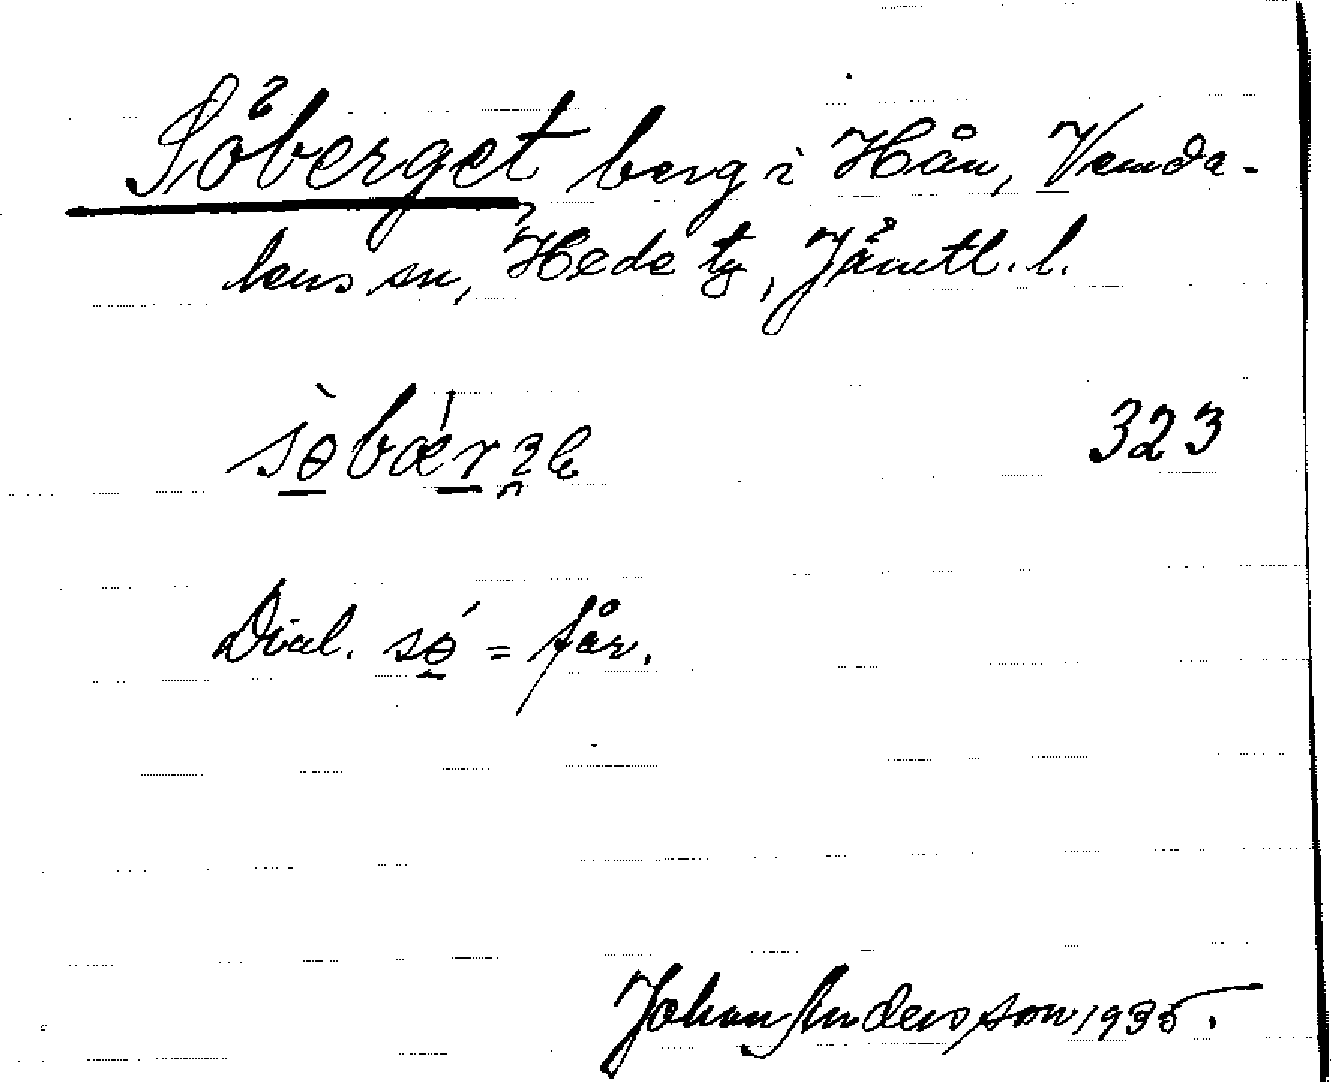 Söberget berg i Hån, Vemda-
lens sn, Hede tg, Jämtl. l.
323
Dial. sǿ̱ = får.
Johan Andersson 1935.